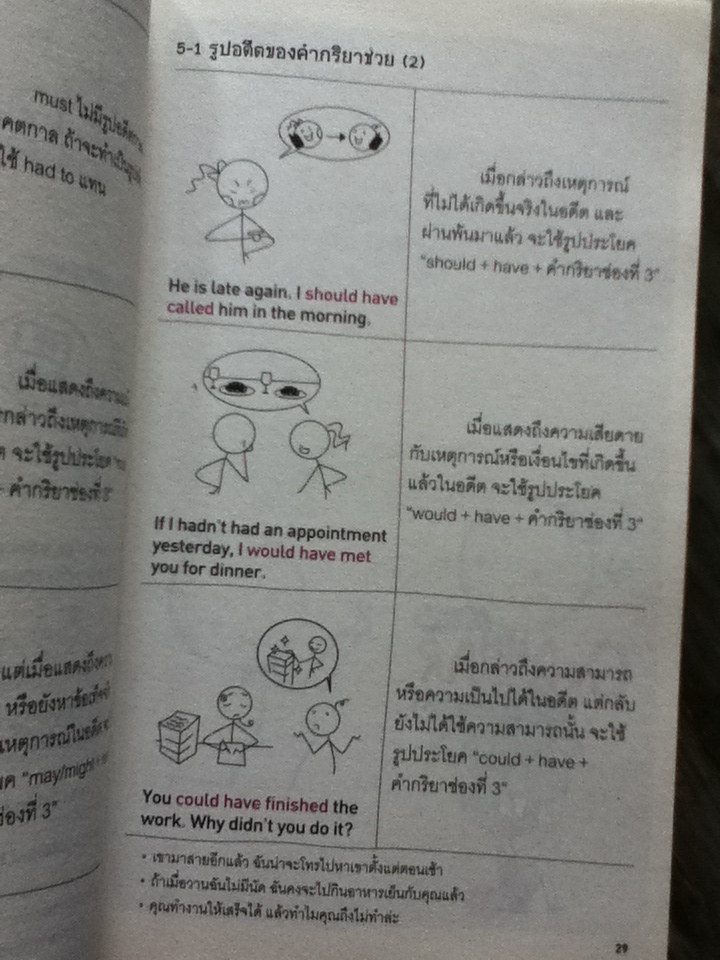 must ไม่มีรูปอดีต
คตกาล ถ้าจะทำเป็นรูป
ใช้ had to แทน
เมื่อแสดงถึงความ
กล่าวถึงเหตุการณ์
จะใช้รูปประโยค
+ คำกริยาช่องที่ 3"
แต่เมื่อแสดงถึง
หรือยังหาข้อ
เหตุการณ์ในอดีต
"may/might +
ช่องที่ 3"
5-1 รูปอดีตของคำกริยาช่วย (2)
He is late again. I should have
called him in the morning.
เมื่อกล่าวถึงเหตุการณ์
ที่ไม่ได้เกิดขึ้นจริงในอดีต และ
ผ่านพ้นมาแล้ว จะใช้รูปประโยค
"should + have + คำกริยาช่องที่ 3"
If I hadn't had an appointment
yesterday, I would have met
you for dinner.
เมื่อแสดงถึงความเสียดาย
กับเหตุการณ์หรือเงื่อนไขที่เกิดขึ้น
แล้วในอดีต จะใช้รูปประโยค
"would + have + คำกริยาช่องที่ 3"
You could have finished the
work. Why didn't you do it?
เมื่อกล่าวถึงความสามารถ
หรือความเป็นไปได้ในอดีต แต่กลับ
ยังไม่ได้ใช้ความสามารถนั้น จะใช้
รูปประโยค "could + have +
คำกริยาช่องที่ 3"
• เขามาสายอีกแล้ว ฉันน่าจะโทรไปหาเขาตั้งแต่ตอนเช้า
• ถ้าเมื่อวานฉันไม่มีนัด ฉันคงจะไปกินอาหารเย็นกับคุณแล้ว
• คุณทำงานให้เสร็จได้ แล้วทำไมคุณถึงไม่ทำล่ะ
29